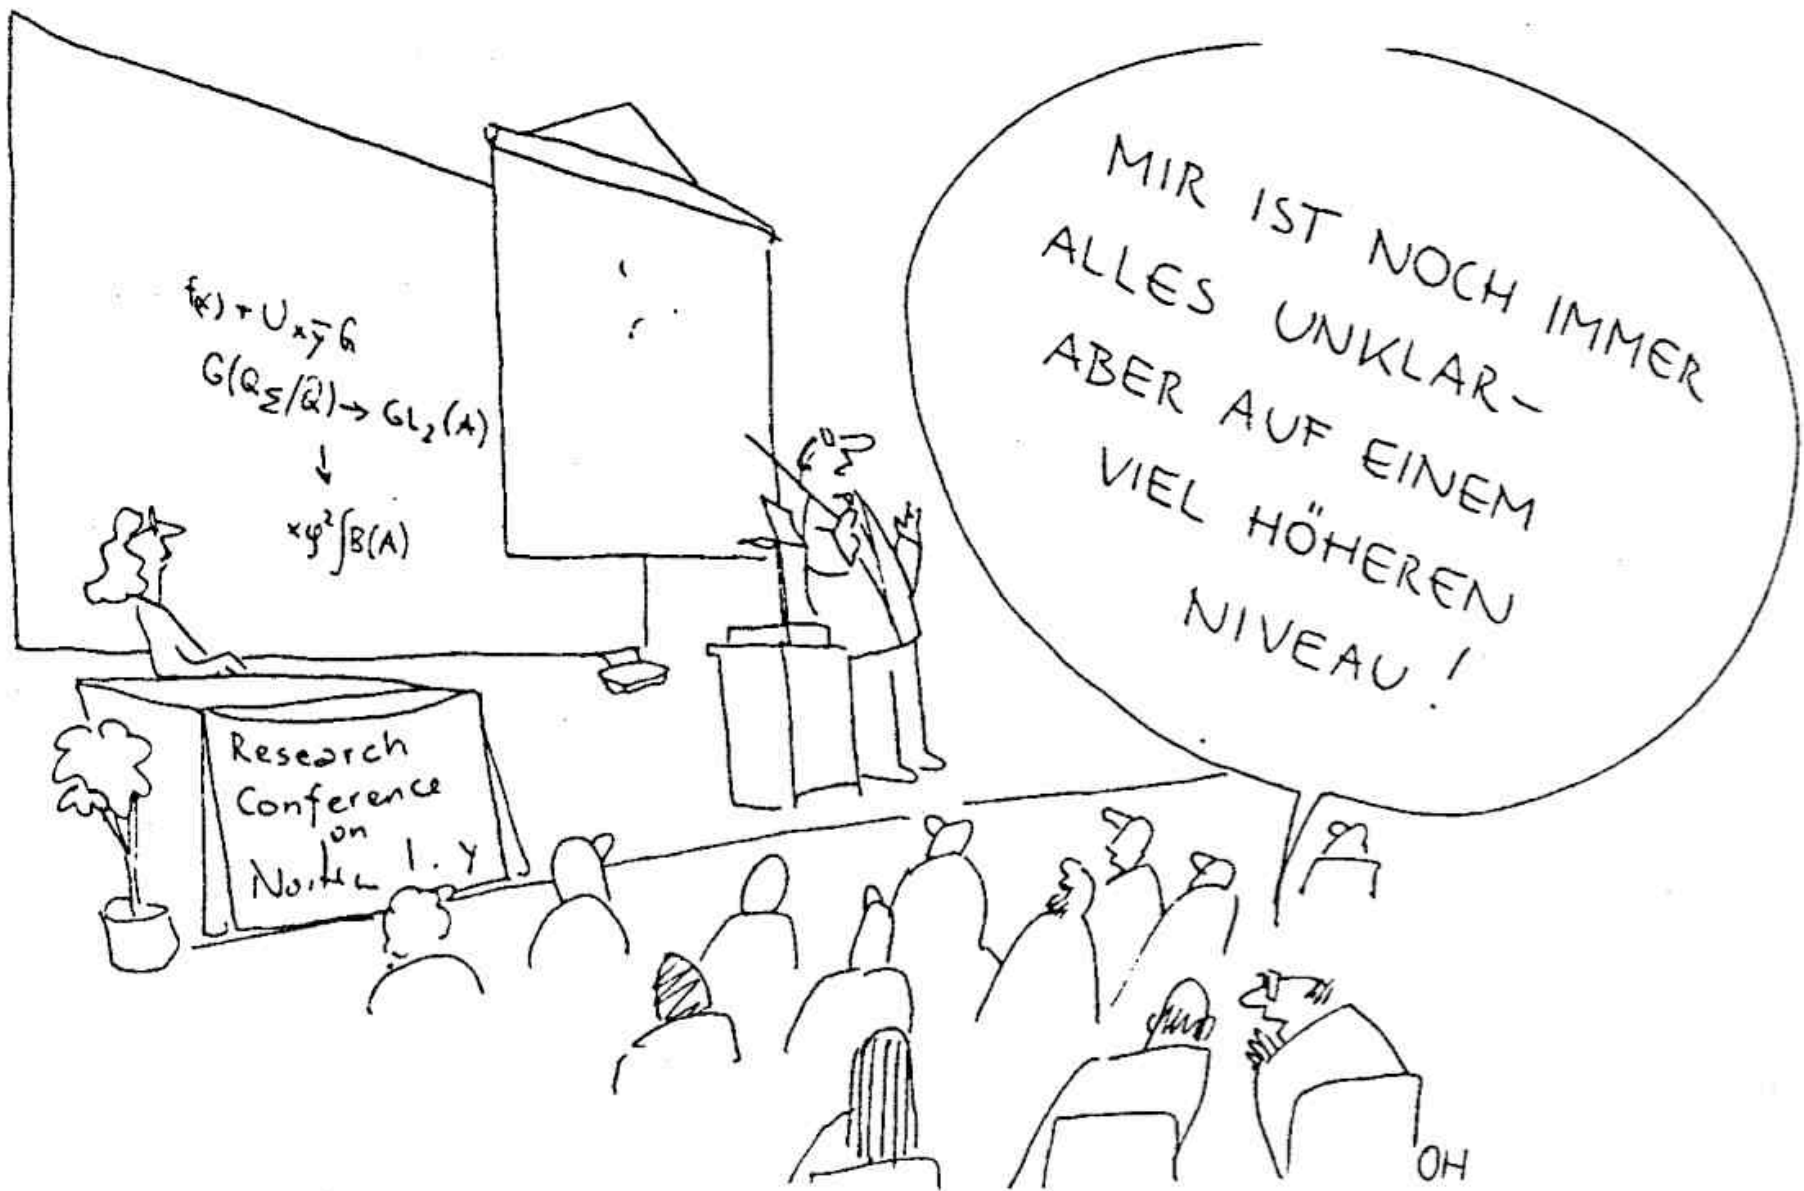 f(x) + U x ȳ G
G(Q_Σ/Q) → GL₂(A)
↓
xφ²∫B(A)
MIR IST NOCH IMMER
ALLES UNKLAR-
ABER AUF EINEM
VIEL HÖHEREN
NIVEAU!
Research
Conference
on
OH